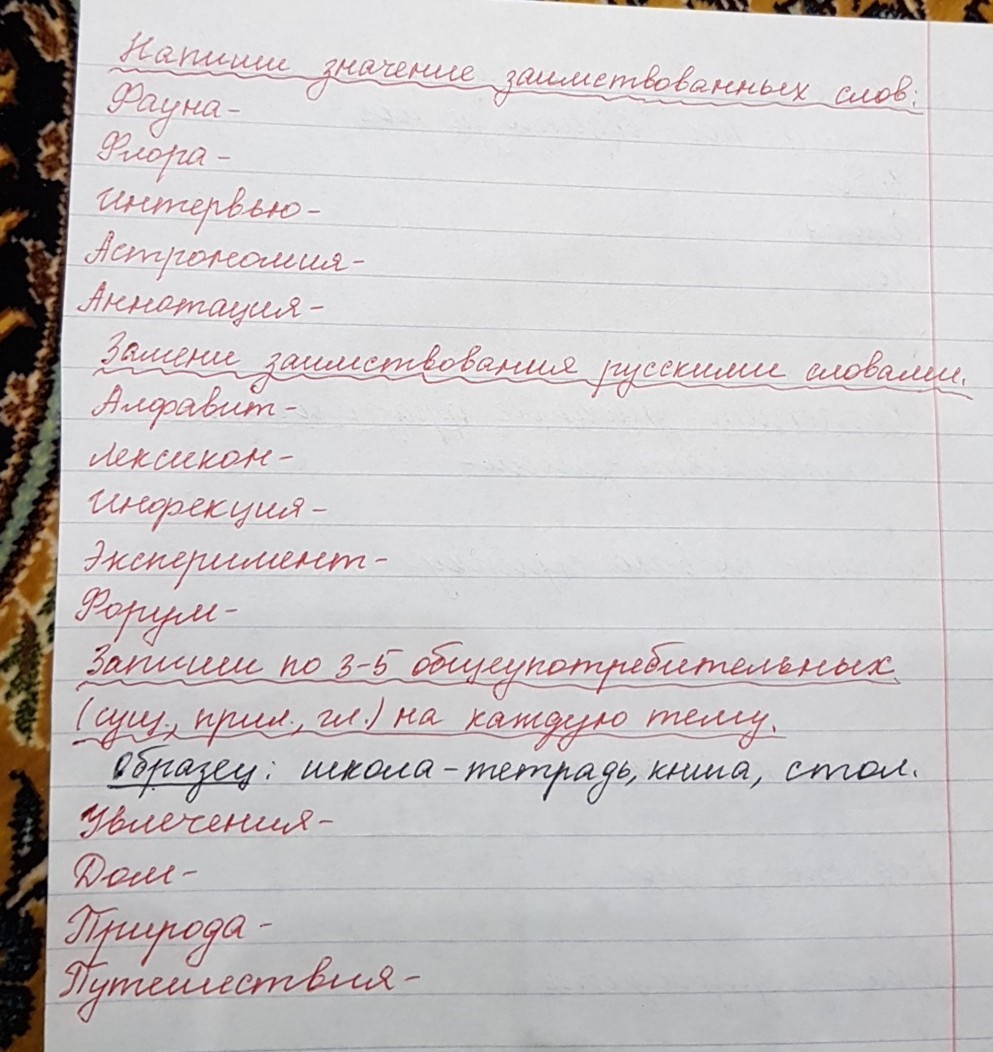 Напиши значение заимствованных слов:
Фауна-
Флора-
Интервью-
Астрономия-
Аннотация-
Замени заимствования русскими словами.
Алфавит-
Лексикон-
Инфекция-
Эксперимент-
Форум-
Запиши по 3-5 общеупотребительных
(сущ., прил., гл.) на каждую тему.
Образец: школа-тетрадь, книга, стол.
Увлечения-
Дом-
Природа-
Путешествия-